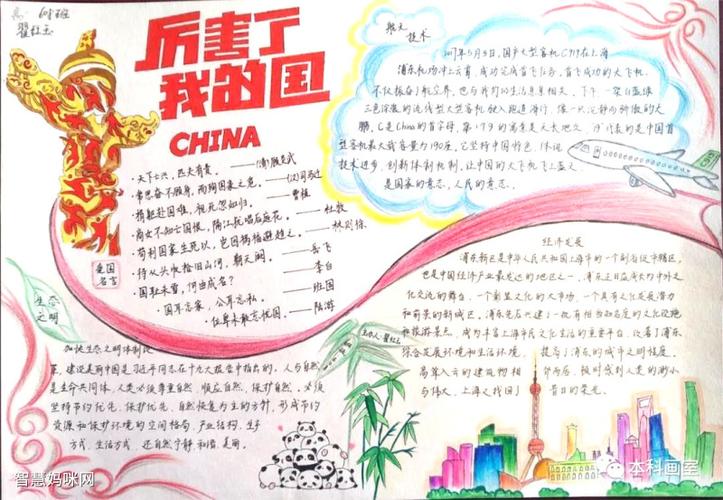 翟红玉
厉害了
我的国
CHINA
·天下兴亡，匹夫有责。——(清)顾炎武
·常思奋不顾身，而殉国家之急。——(汉)司马迁
·捐躯赴国难，视死忽如归。——曹植
·商女不知亡国恨，隔江犹唱后庭花。——杜牧
·苟利国家生死以，岂因祸福避趋之。——林则徐
·待从头收拾旧山河，朝天阙。——岳飞
·国耻未雪，何由成名？——李白
·国耳忘家，公耳忘私。——班固
·位卑未敢忘忧国。——陆游
爱国
名言
航天
技术
2017年5月5日，国产大型客机C919在上海
浦东机场冲上云霄，成功完成首飞任务，首飞成功的大飞机，
三色涂装的流线型大型客机驶入跑道滑行，像一只沉静而骄傲的大
鹏，C是China的首字母，第一个9的寓意是天长地久，19代表的是中国首
型客机最大载客量为190座。它坚持中国特色，体现
技术进步，创新体制机制，让中国的大飞机飞上蓝天
是国家的意志，人民的意志。
经济发展
浦东新区是中华人民共和国上海市的一个副省级市辖区，
也是中国经济产业最发达的地区之一，浦东正日益成为中外文
化交流的舞台，一个彰显文化的大市场，一个具有文化发展潜力
和前景的新城区，浦东先后兴建了一批有相当知名度的文化设施
和旅游景点，成为丰富上海市民文化生活的重要平台，改善了浦东
综合发展环境和生活环境，提高了浦东的城市文明程度，
昔日的荣光。
生态
文明
加快生态文明体制改
革，建设美丽中国是习近平同志在十九大报告中指出的，人与自然
是生命共同体，人类必须尊重自然，顺应自然，保护自然，必须
坚持节约优先，保护优先，自然恢复为主的方针，形成节约
资源和保护环境的空间格局，产业结构，生产
方式，生活方式，还自然宁静，和谐，美丽。
主办人：翟红玉
智慧妈咪网
本科画室